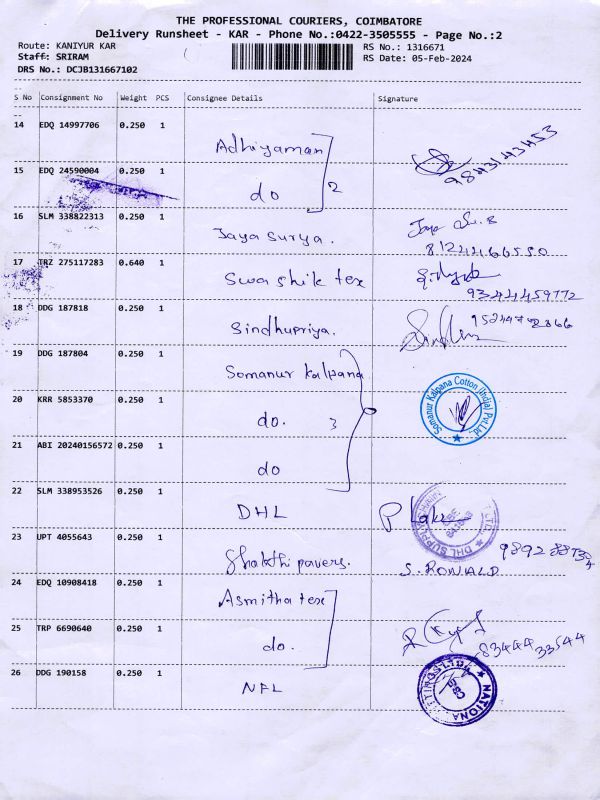 THE PROFESSIONAL COURIERS, COIMBATORE
Delivery Runsheet - KAR - Phone No.:0422-3505555 - Page No.:2
Route: KANIYUR KAR RS No.: 1316671
Staff: SRIRAM RS Date: 05-Feb-2024
DRS No.: DCJB131667102
S No Consignment No Weight PCS Consignee Details Signature
14 EDQ 14997706 0.250 1 Adhiyaman 9843143453
15 EDQ 24590004 0.250 1 do 2
16 SLM 338822313 0.250 1 Jayasurya. 8124466550
17 TRZ 275117283 0.640 1 Swashik tex 9344459772
18 DDG 187818 0.250 1 Sindhupriya.
19 DDG 187804 0.250 1 Somanur kalpana
20 KRR 5853370 0.250 1 do. 3 Somanur Kalpana Cotton (India) Pvt Ltd.,
21 ABI 20240156572 0.250 1 do
22 SLM 338953526 0.250 1 DHL DHL SUPPLY
23 UPT 4055643 0.250 1 Shakthi pavers. S. RONALD
24 EDQ 10908418 0.250 1 Asmitha tex
25 TRP 6690640 0.250 1 do. 8344433544
26 DDG 190158 0.250 1 NFL